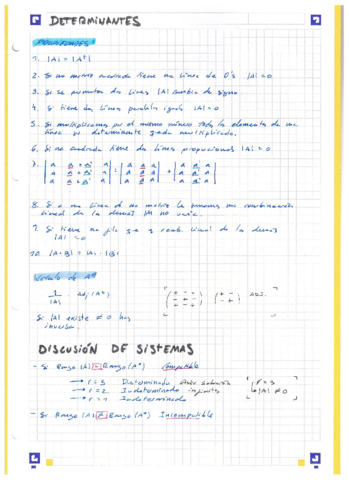 DETERMINANTES
PROPIEDADES
1. |A| = |Aᵗ|
2. Si una matriz cuadrada tiene una línea de 0's |A| = 0
3. Si se permutan dos líneas |A| cambia de signo.
4. Si tiene dos líneas paralelas iguales |A| = 0
5. Si multiplicamos por el mismo número todos los elementos de una
línea su determinante queda multiplicado.
6. Si una cuadrada tiene dos líneas proporcionales |A| = 0
7.
8. Si a una línea de una matriz le sumamos una combinación
lineal de las demás |A| no varía.
9. Si tiene una fila q e s comb. lineal de las demás
|A| = 0
10. |A·B| = |A|·|B|
Cálculo de A⁻¹
1/|A| · adj (Aᵗ)
(+ - + - + - + - +) (+ - - +) ADJ.
Si |A| existe ≠ 0 hay
inversa.
DISCUSIÓN DE SISTEMAS
- Si Rango (A) = Rango (A*) Compatible
→ r = 3 Determinado única solución
→ r = 2 Indeterminado infinitas
→ r = 1 Indeterminado
r = 3
|A| ≠ 0
- Si Rango (A) ≠ Rango (A*) Incompatible